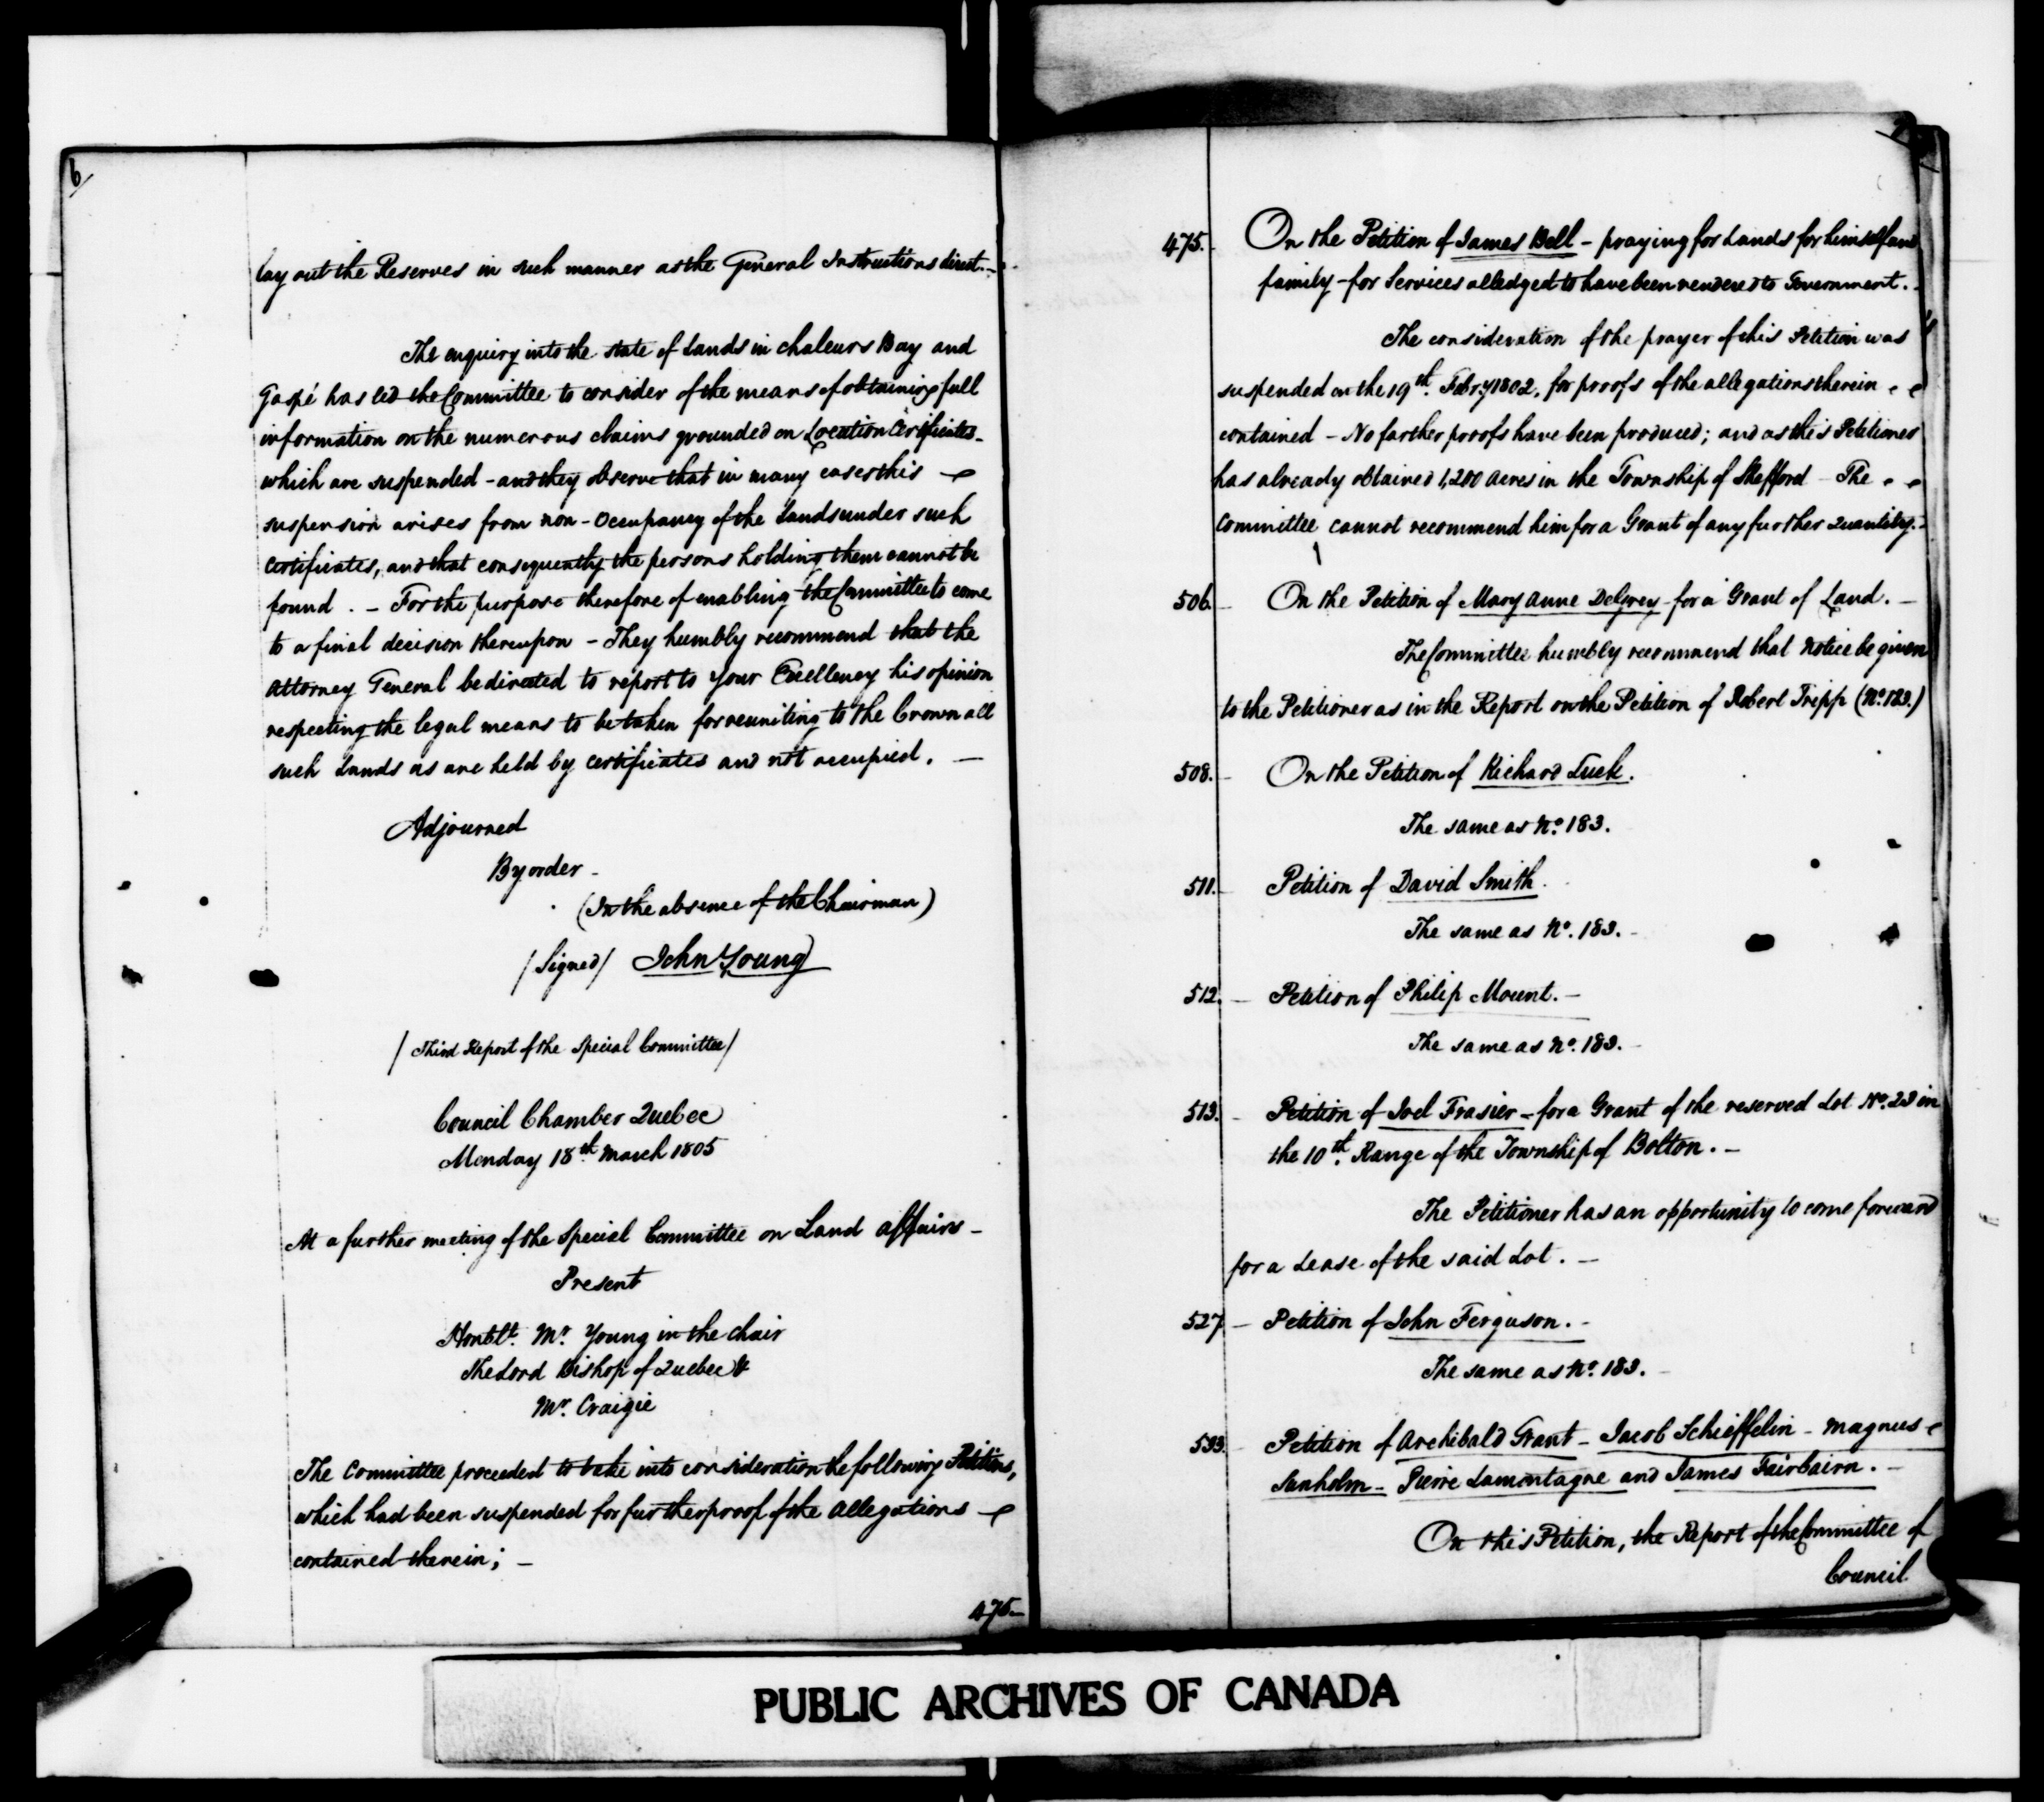 6
lay out the Reserves in such manner as the General Instructions direct. -
The enquiry into the state of Lands in Chaleurs Bay and
Gaspé has led the Committee to consider of the means of obtaining full
information on the numerous claims grounded on Location Certificates -
which are suspended - and they observe that in many cases this -
suspension arises from non - Occupancy of the Lands under such
Certificates, and that consequently the persons holding them cannot be
found . - For the purpose therefore of enabling the Committee to come
to a final decision thereupon - They humbly recommend that the
Attorney General be directed to report to your Excellency his opinion
respecting the legal means to be taken for reuniting to the Crown all
such Lands as are held by Certificates and not occupied. -
Adjourned
By order -
(In the absence of the Chairman)
/Signed/ John Young
/ Third Report of the Special Committee /
Council Chamber Quebec
Monday 18th March 1805
At a further meeting of the Special Committee on Land affairs -
Present
Honble. Mr. Young in the chair
The Lord Bishop of Quebec &
Mr. Craigie
The Committee proceeded to take into consideration the following Petitions,
which had been suspended for further proof of the allegations -
contained therein; -
475 -
475. On the Petition of James Bell - praying for Lands for himself and
family - for Services alledged to have been rendered to Government.
The consideration of the prayer of this Petition was
suspended on the 19th. Febry 1802, for proofs of the allegations therein - -
contained - No farther proofs have been produced; and as this Petitioner
has already obtained 1,200 acres in the Township of Shefford - The - -
Committee cannot recommend him for a Grant of any further Quantity. -
506. - On the Petition of Mary Anne DeGrey - for a Grant of Land. -
The Committee humbly recommend that notice be given
to the Petitioner as in the Report on the Petition of Robert Tripp (No. 183.)
508. - On the Petition of Richard Luck.
The same as No. 183.
511. - Petition of David Smith.
The same as No. 183. -
512. - Petition of Philip Mount. -
The same as No. 183. -
513. - Petition of Joel Frasier - for a Grant of the reserved Lot No. 23 in
the 10th. Range of the Township of Bolton. -
The Petitioner has an opportunity to come forward
for a Lease of the said Lot. -
527 - Petition of John Ferguson. -
The same as No. 183. -
533. - Petition of Archibald Grant - Jacob Schieffelin - Magnus -
Sanholm - Pierre Lamontagne and James Fairbairn. -
On this Petition, the Report of the Committee of
Council
PUBLIC ARCHIVES OF CANADA